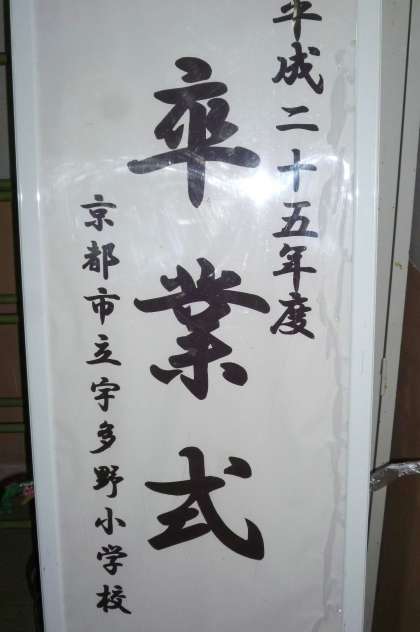 平成二十五年度
卒業式
京都市立宇多野小学校